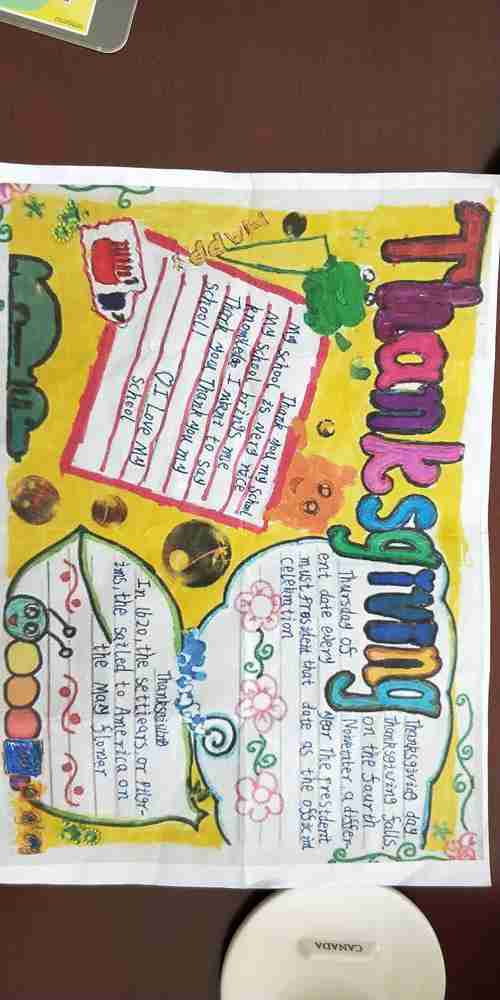 Thanksgiving
Thanksgiving day
Thanksgiving falls
on the fourth
Thursday of November, a differ-
ent date every year The President
must President that date as the official
celebration
HAPPY
My school Thank you my School
My School is very nice
knowledge I brings me
Thank you I want to say
School! Thank you my
I Love My
School
Thanksgiving
In 1620, the settlears, or Pilgr-
ims, the sailed to America on
the May flower
CANADA